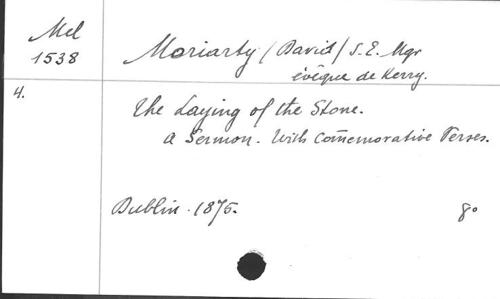 Mel
1538
Moriarty / David / S. E. Mgr
évêque de Kerry.
4.
The Laying of the Stone.
a Sermon. With Com̄emorative Verses.
Dublin. 1875.
8º